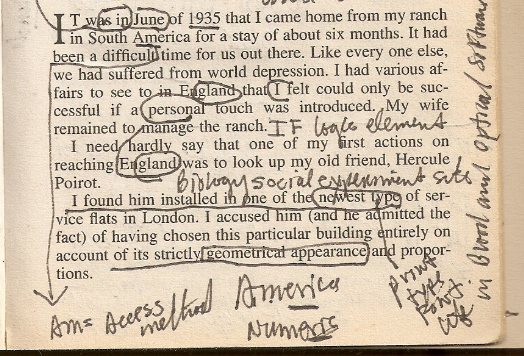 IT was in June of 1935 that I came home from my ranch
in South America for a stay of about six months. It had
been a difficult time for us out there. Like every one else,
we had suffered from world depression. I had various af-
fairs to see to in England that I felt could only be suc-
cessful if a personal touch was introduced. My wife
remained to manage the ranch. IF logic element
I need hardly say that one of my first actions on
reaching England was to look up my old friend, Hercule
Poirot.
Biology social experiment sits
I found him installed in one of the newest type of ser-
vice flats in London. I accused him (and he admitted the
fact) of having chosen this particular building entirely on
account of its strictly geometrical appearance and propor-
tions.
Am = Access
method
America
Numeris
print
type
in Blood and optical